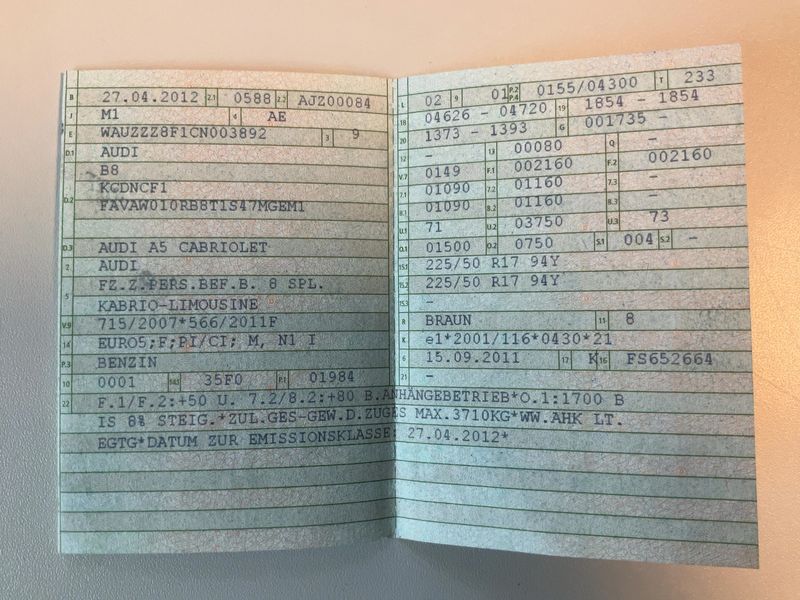 B 27.04.2012 2.1 0588 2.2 AJZ00084
J M1 4 AE
E WAUZZZ8F1CN003892 3 9
D.1 AUDI
B8
D.2 KCDNCF1
FAVAW010RB8T1S47MGEM1
D.3 AUDI A5 CABRIOLET
2 AUDI
5 FZ.Z.PERS.BEF.B. 8 SPL.
KABRIO-LIMOUSINE
V.9 715/2007*566/2011F
14 EURO5;F;PI/CI; M, N1 I
P.3 BENZIN
10 0001 14.1 35F0 P.1 01984
22 F.1/F.2:+50 U. 7.2/8.2:+80 B.ANHÄNGEBETRIEB*O.1:1700 B
IS 8% STEIG.*ZUL.GES-GEW.D.ZUGES MAX.3710KG*WW.AHK LT.
EGTG*DATUM ZUR EMISSIONSKLASSE: 27.04.2012*
L 02 9 01 P.2 P.4 0155/04300 T 233
18 04626 - 04720 19 1854 - 1854
20 1373 - 1393 G 001735 -
12 - 13 00080 Q -
V.7 0149 F.1 002160 F.2 002160
7.1 01090 7.2 01160 7.3 -
8.1 01090 8.2 01160 8.3 -
U.1 71 U.2 03750 U.3 73
O.1 01500 O.2 0750 S.1 004 S.2 -
15.1 225/50 R17 94Y
15.2 225/50 R17 94Y
15.3 -
R BRAUN 11 8
K e1*2001/116*0430*21
6 15.09.2011 17 K 16 FS652664
21